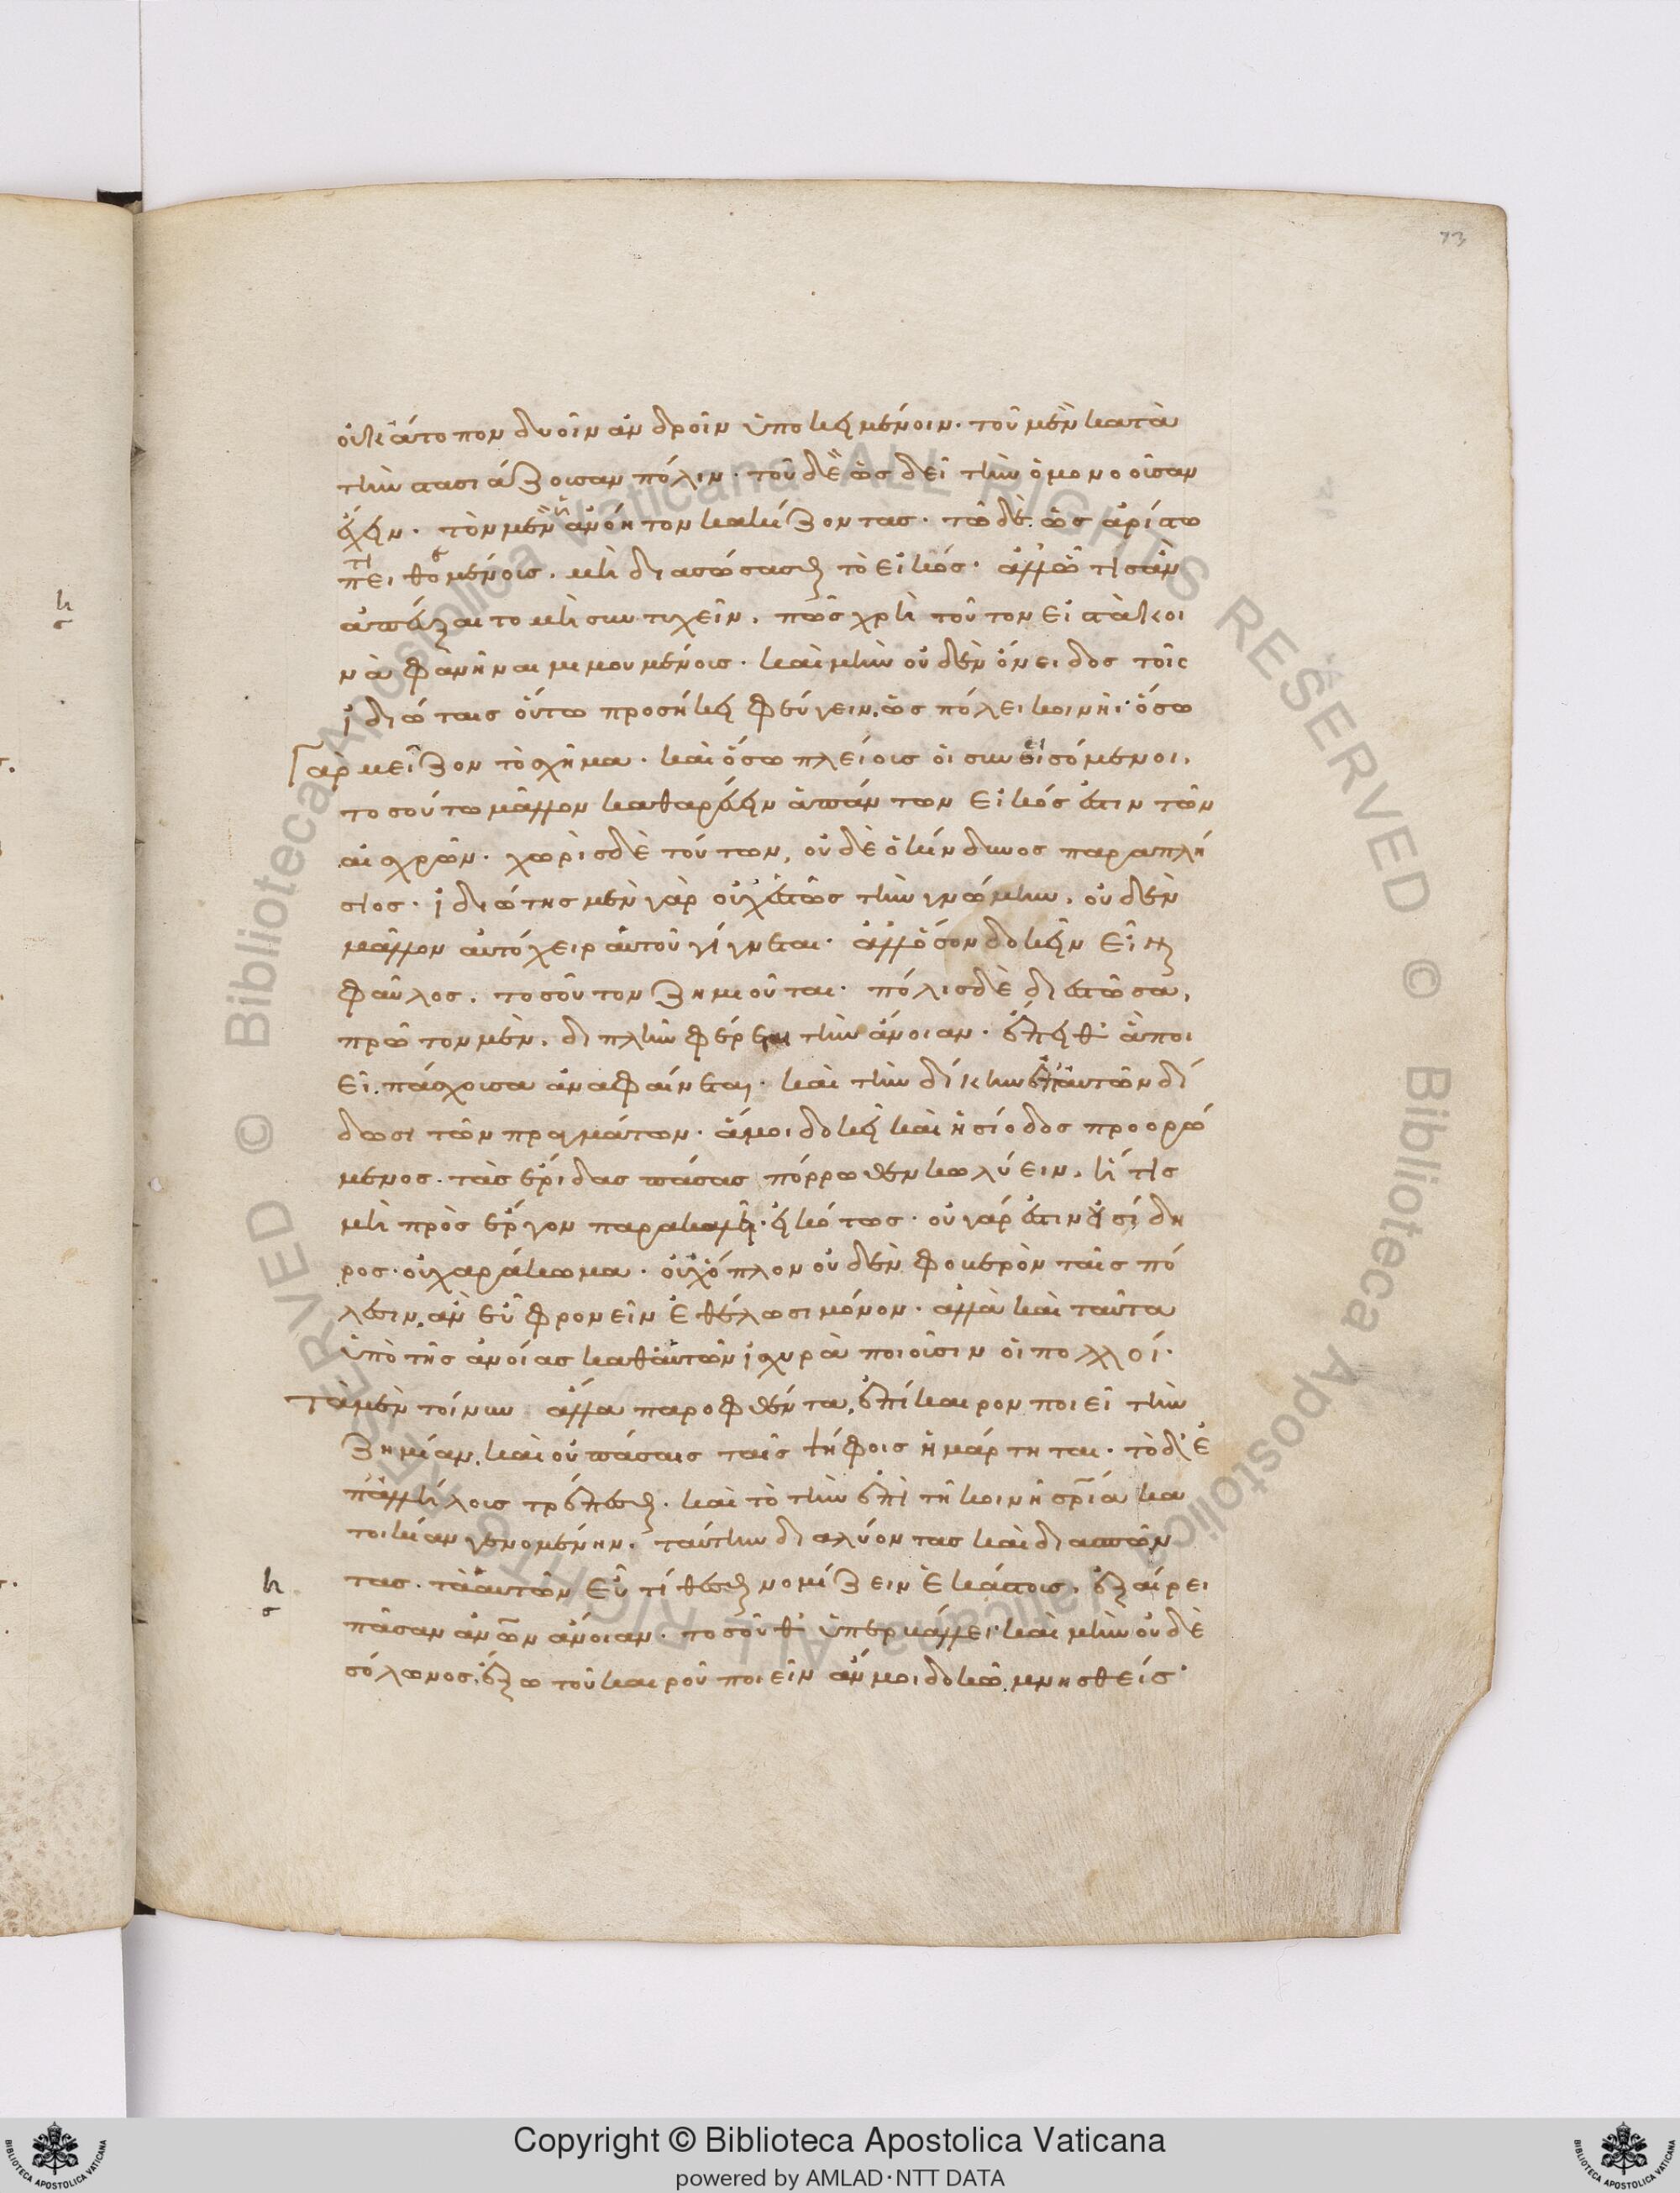 73
οὐκ ἄτοπον δυοῖν ἀνδροῖν ὑποκειμένοιν· τοῦ μὲν κατὰ
τὴν στασιάζουσαν πόλιν· τοῦ δὲ ὡς δεῖ τὴν ὁμονοοῦσαν
ἔχειν· τὸν μὲν ἀνόητον κακίζοντας· τῷ δὲ ὡς ἀρίστῳ
πειθομένους. μὴ διασώσασθαι τὸ εἰκός· ἀλλ' ᾧ τις ἂν
ἀπεύξαιτο μὴ συντυχεῖν, πῶς χρὴ τοῦτον εἰς τὸ κοι
νὸν φανῆναι μιμουμένους· καὶ μὴν οὐδὲν ὄνειδος τοῖς
ἰδιώταις οὕτω προσήκει φεύγειν, ὡς πόλει κοινῆι· ὅσω
γὰρ μεῖζον τὸ σχῆμα· καὶ ὅσω πλείους οἱ συνεισόμενοι,
τοσούτω μᾶλλον καθαρεύειν ἁπάντων εἰκός ἐστιν τῶν
αἰσχρῶν· χωρὶς δὲ τούτων, οὐδὲ ὁ κίνδυνος παραπλή
σιος· ἰδιώτης μὲν γὰρ οὐχ ἑστὼς τὴν γνώμην, οὐδὲν
μᾶλλον αὐτόχειρ αὑτοῦ γίγνεται· ἀλλ' ὅσον δοκεῖν εἶναι
φαῦλος, τοσοῦτον ζημιοῦται· πόλις δὲ διαστᾶσα,
πρῶτον μὲν, διπλῆν φέρεται τὴν ἄνοιαν· ἔπειθ' ἃ ποι
εῖ πάσχουσα ἀναφαίνεται· καὶ τὴν δίκην ἐπ' αὐτῶν δί
δωσι τῶν πραγμάτων· ἅ μοι δοκεῖ καὶ ἡσίοδος προορώ
μενος· τὰς ἔριδας πάσας πόρρωθεν κωλύειν, ἥ τις
μὴ πρὸς ἔργον παρακαλῆι· εἰκότως· οὐ γάρ ἐστιν οὐ σίδη
ρος· οὐ χαράκωμα· οὐχ ὅπλον οὐδὲν φοβερὸν ταῖς πό
λεσιν, ἂν εὖ φρονεῖν ἐθέλωσι μόνον· ἀλλὰ καὶ ταῦτα
ὑπὸ τῆς ἀνοίας καθ' αὑτῶν ἰσχυρὰ ποιοῦσιν οἱ πολλοί·
τὰ μὲν τοίνυν ἄλλα παροφθέντα, ἐπίκαιρον ποιεῖ τὴν
ζημίαν, καὶ οὐ πάσαις ταῖς ψήφοις ἡμάρτηται· τὸ δ' ἐ
π' ἀλλήλους τρέπεσθαι· καὶ τὸ τὴν ἐπὶ τῆ κοινῆ σωτηρία κα
τοικίαν γενομένην, ταύτην διαλύοντας καὶ διασπῶν
τας, τὰ αὑτῶν εὖ τίθεσθαι νομίζειν ἑκάστους, ἐξαίρει
πᾶσαν ἀνθρώπων ἄνοιαν· τοσοῦθ' ὑπερβάλλει· καὶ μὴν οὐδὲ
σόλωνος, ἔξω τοῦ καιροῦ ποιεῖν ἄν μοι δοκῶ μνησθείς·
Copyright © Biblioteca Apostolica Vaticana
powered by AMLAD·NTT DATA